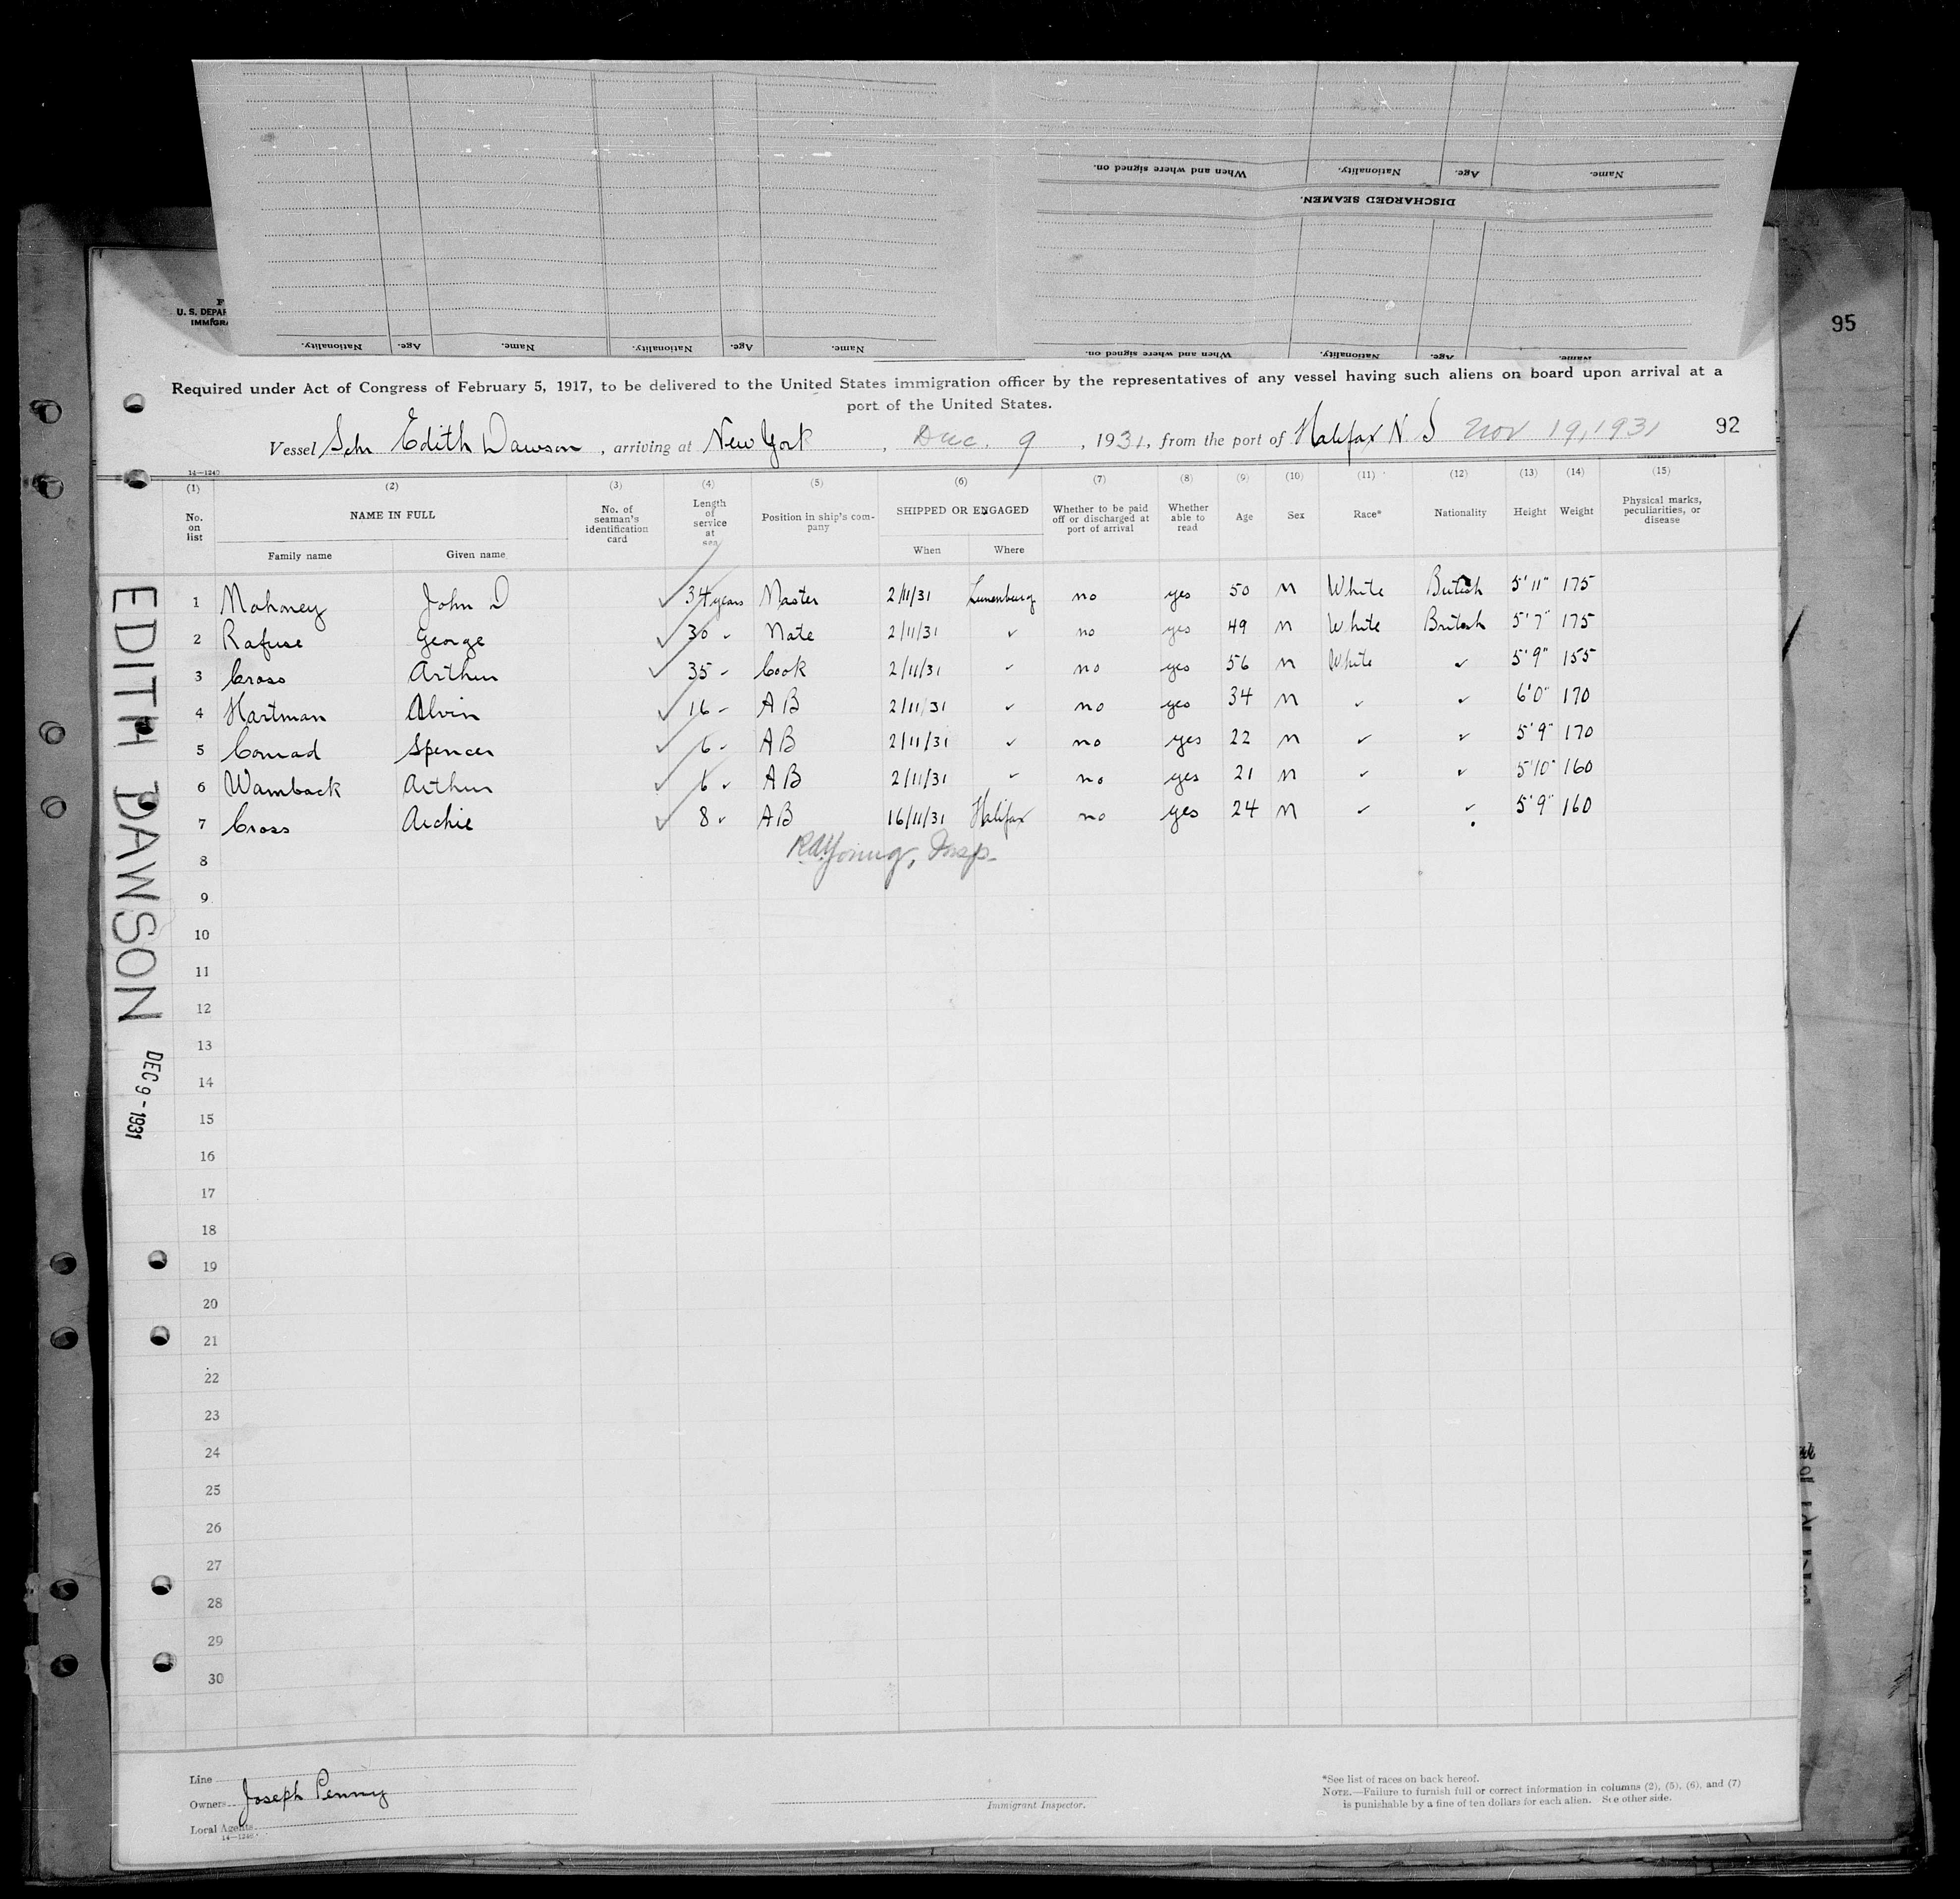 When and where signed on. Nationality. Age. Name.
DISCHARGED SEAMEN.
Nationality. Age. Name. Nationality. Age. Name. When and where signed on. Nationality. Age. Name.
U. S. DEPAR
IMMIGRA
95
Required under Act of Congress of February 5, 1917, to be delivered to the United States immigration officer by the representatives of any vessel having such aliens on board upon arrival at a
port of the United States.
Vessel Schr Edith Dawson, arriving at New York, Dec. 9, 1931, from the port of Halifax N S Nov 19, 1931 92
14—1240
(1) (2) (3) (4) (5) (6) (7) (8) (9) (10) (11) (12) (13) (14) (15)
No. on list NAME IN FULL No. of seaman's identification card Length of service at sea Position in ship's company SHIPPED OR ENGAGED Whether to be paid off or discharged at port of arrival Whether able to read Age Sex Race* Nationality Height Weight Physical marks, peculiarities, or disease
Family name Given name When Where
1 Mahoney John D ✓ 34 years Master 2/11/31 Lunenburg no yes 50 M White British 5'11" 175
2 Rafuse George ✓ 30 ✓ Mate 2/11/31 ✓ no yes 49 M White British 5'7" 175
3 Cross Arthur ✓ 35 ✓ Cook 2/11/31 ✓ no yes 56 M White ✓ 5'9" 155
4 Hartman Alvin ✓ 16 ✓ AB 2/11/31 ✓ no yes 34 M ✓ ✓ 6'0" 170
5 Conrad Spencer ✓ 6 ✓ AB 2/11/31 ✓ no yes 22 M ✓ ✓ 5'9" 170
6 Wamback Arthur ✓ 6 ✓ AB 2/11/31 ✓ no yes 21 M ✓ ✓ 5'10" 160
7 Cross Archie ✓ 8 ✓ AB 16/11/31 Halifax no yes 24 M ✓ ✓ 5'9" 160
8 RAYoung, Insp.
9
10
11
12
13
14
15
16
17
18
19
20
21
22
23
24
25
26
27
28
29
30
EDITH DAWSON
DEC 9 - 1931
Line
Owners Joseph Penny
Local Agents
14—1240
Immigrant Inspector.
*See list of races on back hereof.
NOTE.—Failure to furnish full or correct information in columns (2), (5), (6), and (7)
is punishable by a fine of ten dollars for each alien. See other side.